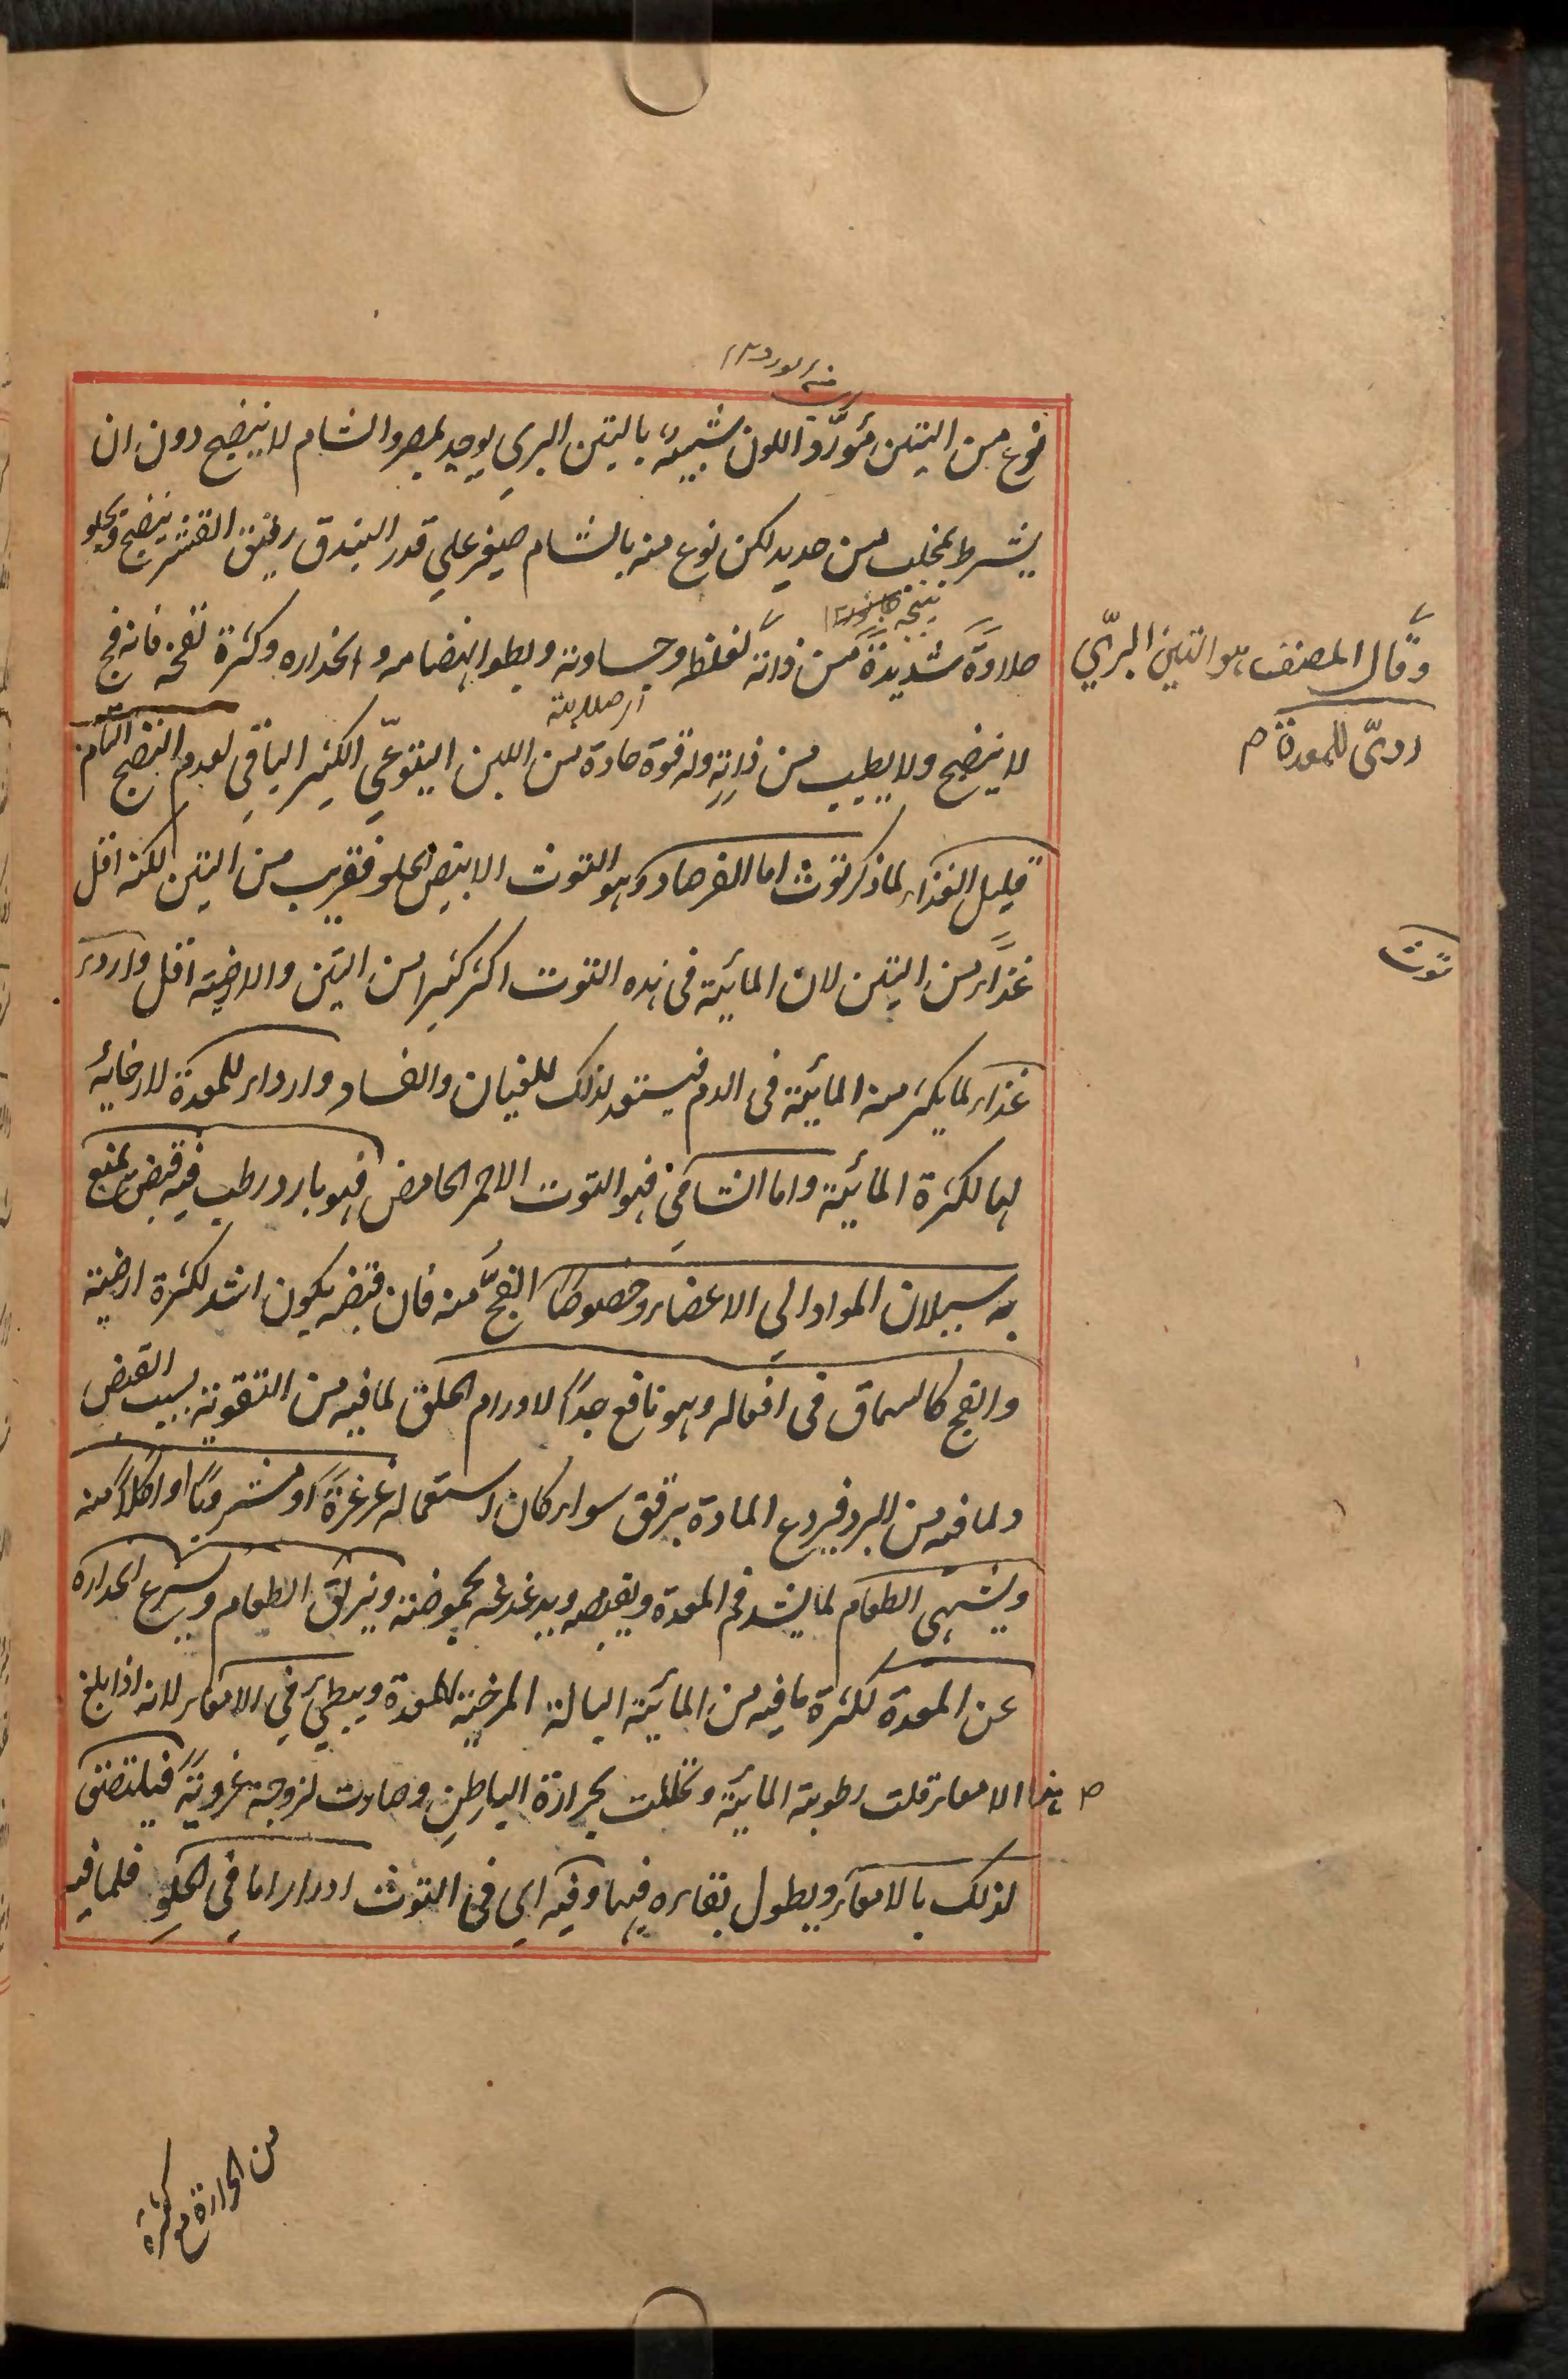 نوع من التين مورد اللون شبيه بالتين البري يوجد بمصر والشام لا ينضج دون ان
يشرط بمخلب من حديد لكن نوع منه بالشام صغير على قدر البندق رقيق القشر ينضج ويحلو
حلاوة شديدة من ذاته لغلظه وجساوته وبطو انهضامه وانحداره وكثرة نفخه فانه فج
لا ينضج ولا يطيب من ذاته وله قوة حادة من اللبن اليتوعي الكثير الباقي لعدم النضج التام
قليل الغذاء لما ذكر توث اما الفرصاد وهو التوث الابيض الحلو فقريب من التين لكنه اقل
غذاء من التين لان المائية في هذه التوث اكثر كثيرا من التين والارضية اقل واردء
غذاء لما يكثر منه المائية في الدم فيستعد لذلك للغليان والفساد واردء للمعدة لارخائه
لها لكثرة المائية واما الشامي فهو التوث الاحمر الحامض فهو بارد رطب فيه قبض يمنع
به سيلان المواد الى الاعضاء وخصوصا الفج منه فان قبضه يكون اشد لكثرة ارضيته
والفج كالسماق في افعاله وهو نافع جدا لاورام الحلق لما فيه من التقوية بسبب القبض
ولما فيه من البرد فيردع المادة برفق سواء كان استعماله غرغرة او مشروبا او اكلا منه
ويشهي الطعام لما يشد فم المعدة ويقبضه ويدغدغه بحموضته ويزلق الطعام ويسرع انحداره
عن المعدة لكثرة ما فيه من المائية البالة المرخية للمعدة ويبطئ في الامعاء لانه اذا بلغ
هذا الامعاء قلت رطوبته المائية وتحللت بحرارة الباطن وصارت لزوجة غروية فيلتصق
لذلك بالامعاء ويطول بقاءه فيها وفيه اي في التوث ادرار اما في الحلو فلما فيه
وقال المصنف هو التين البري
ردي للمعدة
توث
من الحرارة مع كثرة